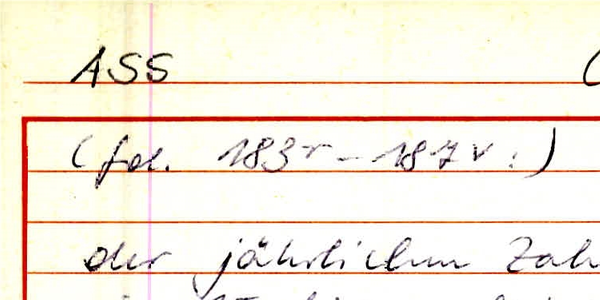 ASS
(fol. 183r - 187v:)
der jährlichen Zah